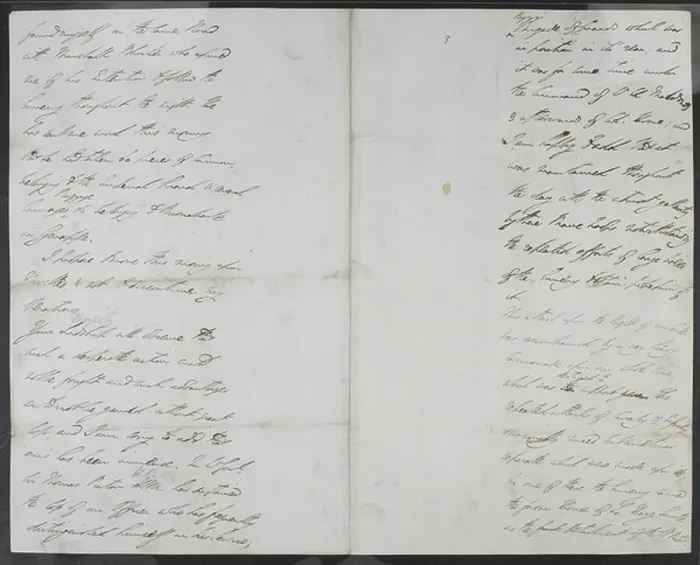 found myself on the same Road
with Marshall Blucher who assured
me of his Intention to follow the
Enemy throughout the night. He
has sent me word this morning
that he had taken 60 pieces of Cannon
belonging to the Imperial Guard, & several
Baggage
Carriages, &c belonging to Buonaparte
in Genappe.
I propose to move this morning upon
Nivelles & not to discontinue my
operations.
Your Lordship will observe that
such a desperate action could
not be fought and such advantages
could not be gained without great
loss, and I am sorry to add that
ours has been immense. In
Sir Thomas Picton H.M. has sustained
the loss of an Officer who has frequently
distinguished himself in his service,
3
Brigade of Guards which was
in position in its rear; and
it was for some time under
the Command of
& afterwards of Col. Home; and
I am happy to add that it
was maintained throughout
the day with the utmost gallantry
by these brave Troops notwithstanding
the repeated efforts of large bodies
of the Enemy to obtain possession of
it.
This attack upon the right of our centre
was accompanied by a very heavy
Cannonade upon our whole line
destined to
which was support the
repeated attacks of Cavalry & Infantry
occasionally mixed but sometimes
separate which were made upon it
In one of these the Enemy carried
the farm House of La Haye Sainte
as the Detachment of the